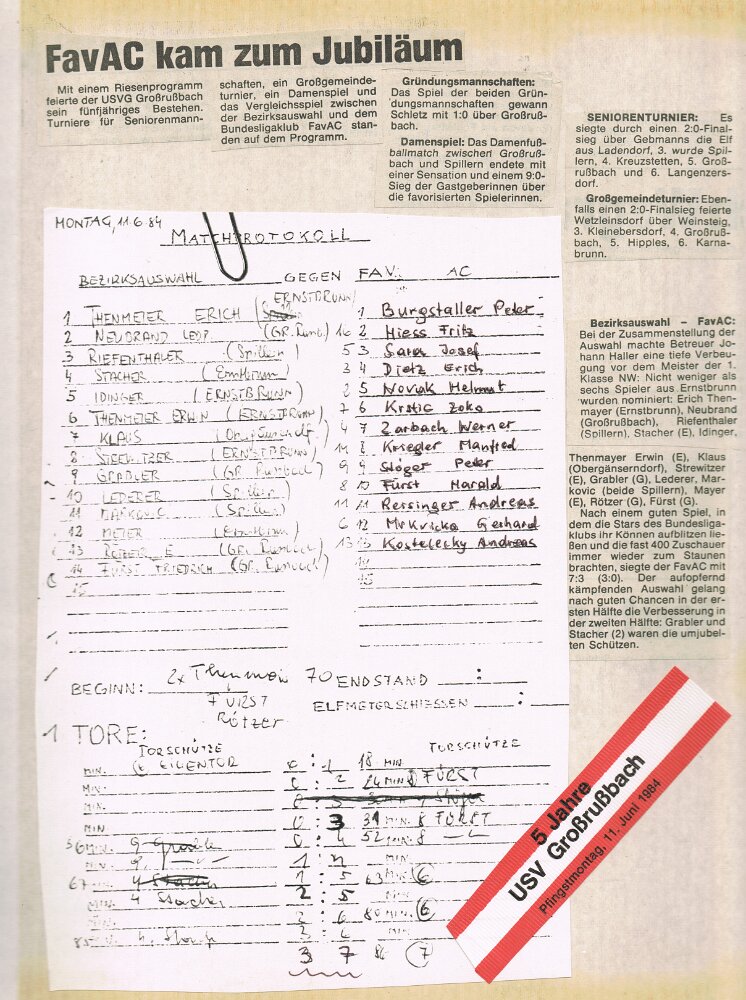 FavAC kam zum Jubiläum
Mit einem Riesenprogramm
feierte der USVG Großrußbach
sein fünfjähriges Bestehen.
Turniere für Seniorenmann-
schaften, ein Großgemeinde-
turnier, ein Damenspiel und
das Vergleichsspiel zwischen
der Bezirksauswahl und dem
Bundesligaklub FavAC stan-
den auf dem Programm.
Gründungsmannschaften:
Das Spiel der beiden Grün-
dungsmannschaften gewann
Schletz mit 1:0 über Großruß-
bach.
Damenspiel: Das Damenfuß-
ballmatch zwischen Großruß-
bach und Spillern endete mit
einer Sensation und einem 9:0-
Sieg der Gastgeberinnen über
die favorisierten Spielerinnen.
SENIORENTURNIER: Es
siegte durch einen 2:0-Final-
sieg über Gebmanns die Elf
aus Ladendorf, 3. wurde Spil-
lern, 4. Kreuzstetten, 5. Groß-
rußbach und 6. Langenzers-
dorf.
Großgemeindeturnier: Eben-
falls einen 2:0-Finalsieg feierte
Wetzleinsdorf über Weinsteig,
3. Kleinebersdorf, 4. Großruß-
bach, 5. Hipples, 6. Karna-
brunn.
Bezirksauswahl – FavAC:
Bei der Zusammenstellung der
Auswahl machte Betreuer Jo-
hann Haller eine tiefe Verbeu-
gung vor dem Meister der 1.
Klasse NW: Nicht weniger als
sechs Spieler aus Ernstbrunn
wurden nominiert: Erich Then-
mayer (Ernstbrunn), Neubrand
(Großrußbach), Riefenthaler
(Spillern), Stacher (E), Idinger,
Thenmayer Erwin (E), Klaus
(Obergänserndorf), Strewitzer
(E), Grabler (G), Lederer, Mar-
kovic (beide Spillern), Mayer
(E), Rötzer (G), Fürst (G).
Nach einem guten Spiel, in
dem die Stars des Bundesliga-
klubs ihr Können aufblitzen lie-
ßen und die fast 400 Zuschauer
immer wieder zum Staunen
brachten, siegte der FavAC mit
7:3 (3:0). Der aufopfernd
kämpfenden Auswahl gelang
nach guten Chancen in der er-
sten Hälfte die Verbesserung in
der zweiten Hälfte: Grabler und
Stacher (2) waren die umjubel-
ten Schützen.
MONTAG, 11.6.84
MATCHPROTOKOLL
BEZIRKSAUSWAHL GEGEN FAV. AC
ERNSTBRUNN
1 THENMEIER ERICH
2 NEUBRAND LEOP.
3 RIEFENTHALER (Spillern)
4 STACHER (Ernstbrunn)
5 IDINGER (ERNSTBRUNN)
6 THENMEIER ERWIN (ERNSTBRUNN)
7 KLAUS
8 STREWITZER (ERNSTBRUNN)
9 GRABLER
10 LEDERER (Spillern)
11 MARKOVIC (Spillern)
12 MEIER (Ernstbrunn)
13 RÖTZER
14 FÜRST FRIEDRICH
15
1 Burgstaller Peter
16 2 Hiess Fritz
5 3 Sara Josef
3 4 Dietz Erich
2 5 Novak Helmut
7 6 Krstic Zoko
4 7 Zarbach Werner
11 8 Kriegler Manfred
9 9 Stöger Peter
8 10 Fürst Harald
11 11 Reisinger Andreas
6 12 Mrkvicka Gerhard
13 13 Kostelecky Andreas
14
15
BEGINN: 2x Thenmai 70 ENDSTAND :
FÜRST
Rötzer
ELFMETERSCHIESSEN :
1 TORE:
TORSCHÜTZE TORSCHÜTZE
MIN. EIGENTOR 0 : 1 18 MIN
MIN. 0 : 2 MIN FÜRST
MIN 0 : 3 MIN. 8 FÜRST
MIN. 0 : 4 52 MIN. 8
MIN.
67 1 : 5 63 MIN 6
4 Stacher 2 : 5 MIN.
MIN. 2 : 6 80 MIN. 6
3 7 7
5 Jahre
USV Großrußbach
Pfingstmontag, 11. Juni 1984